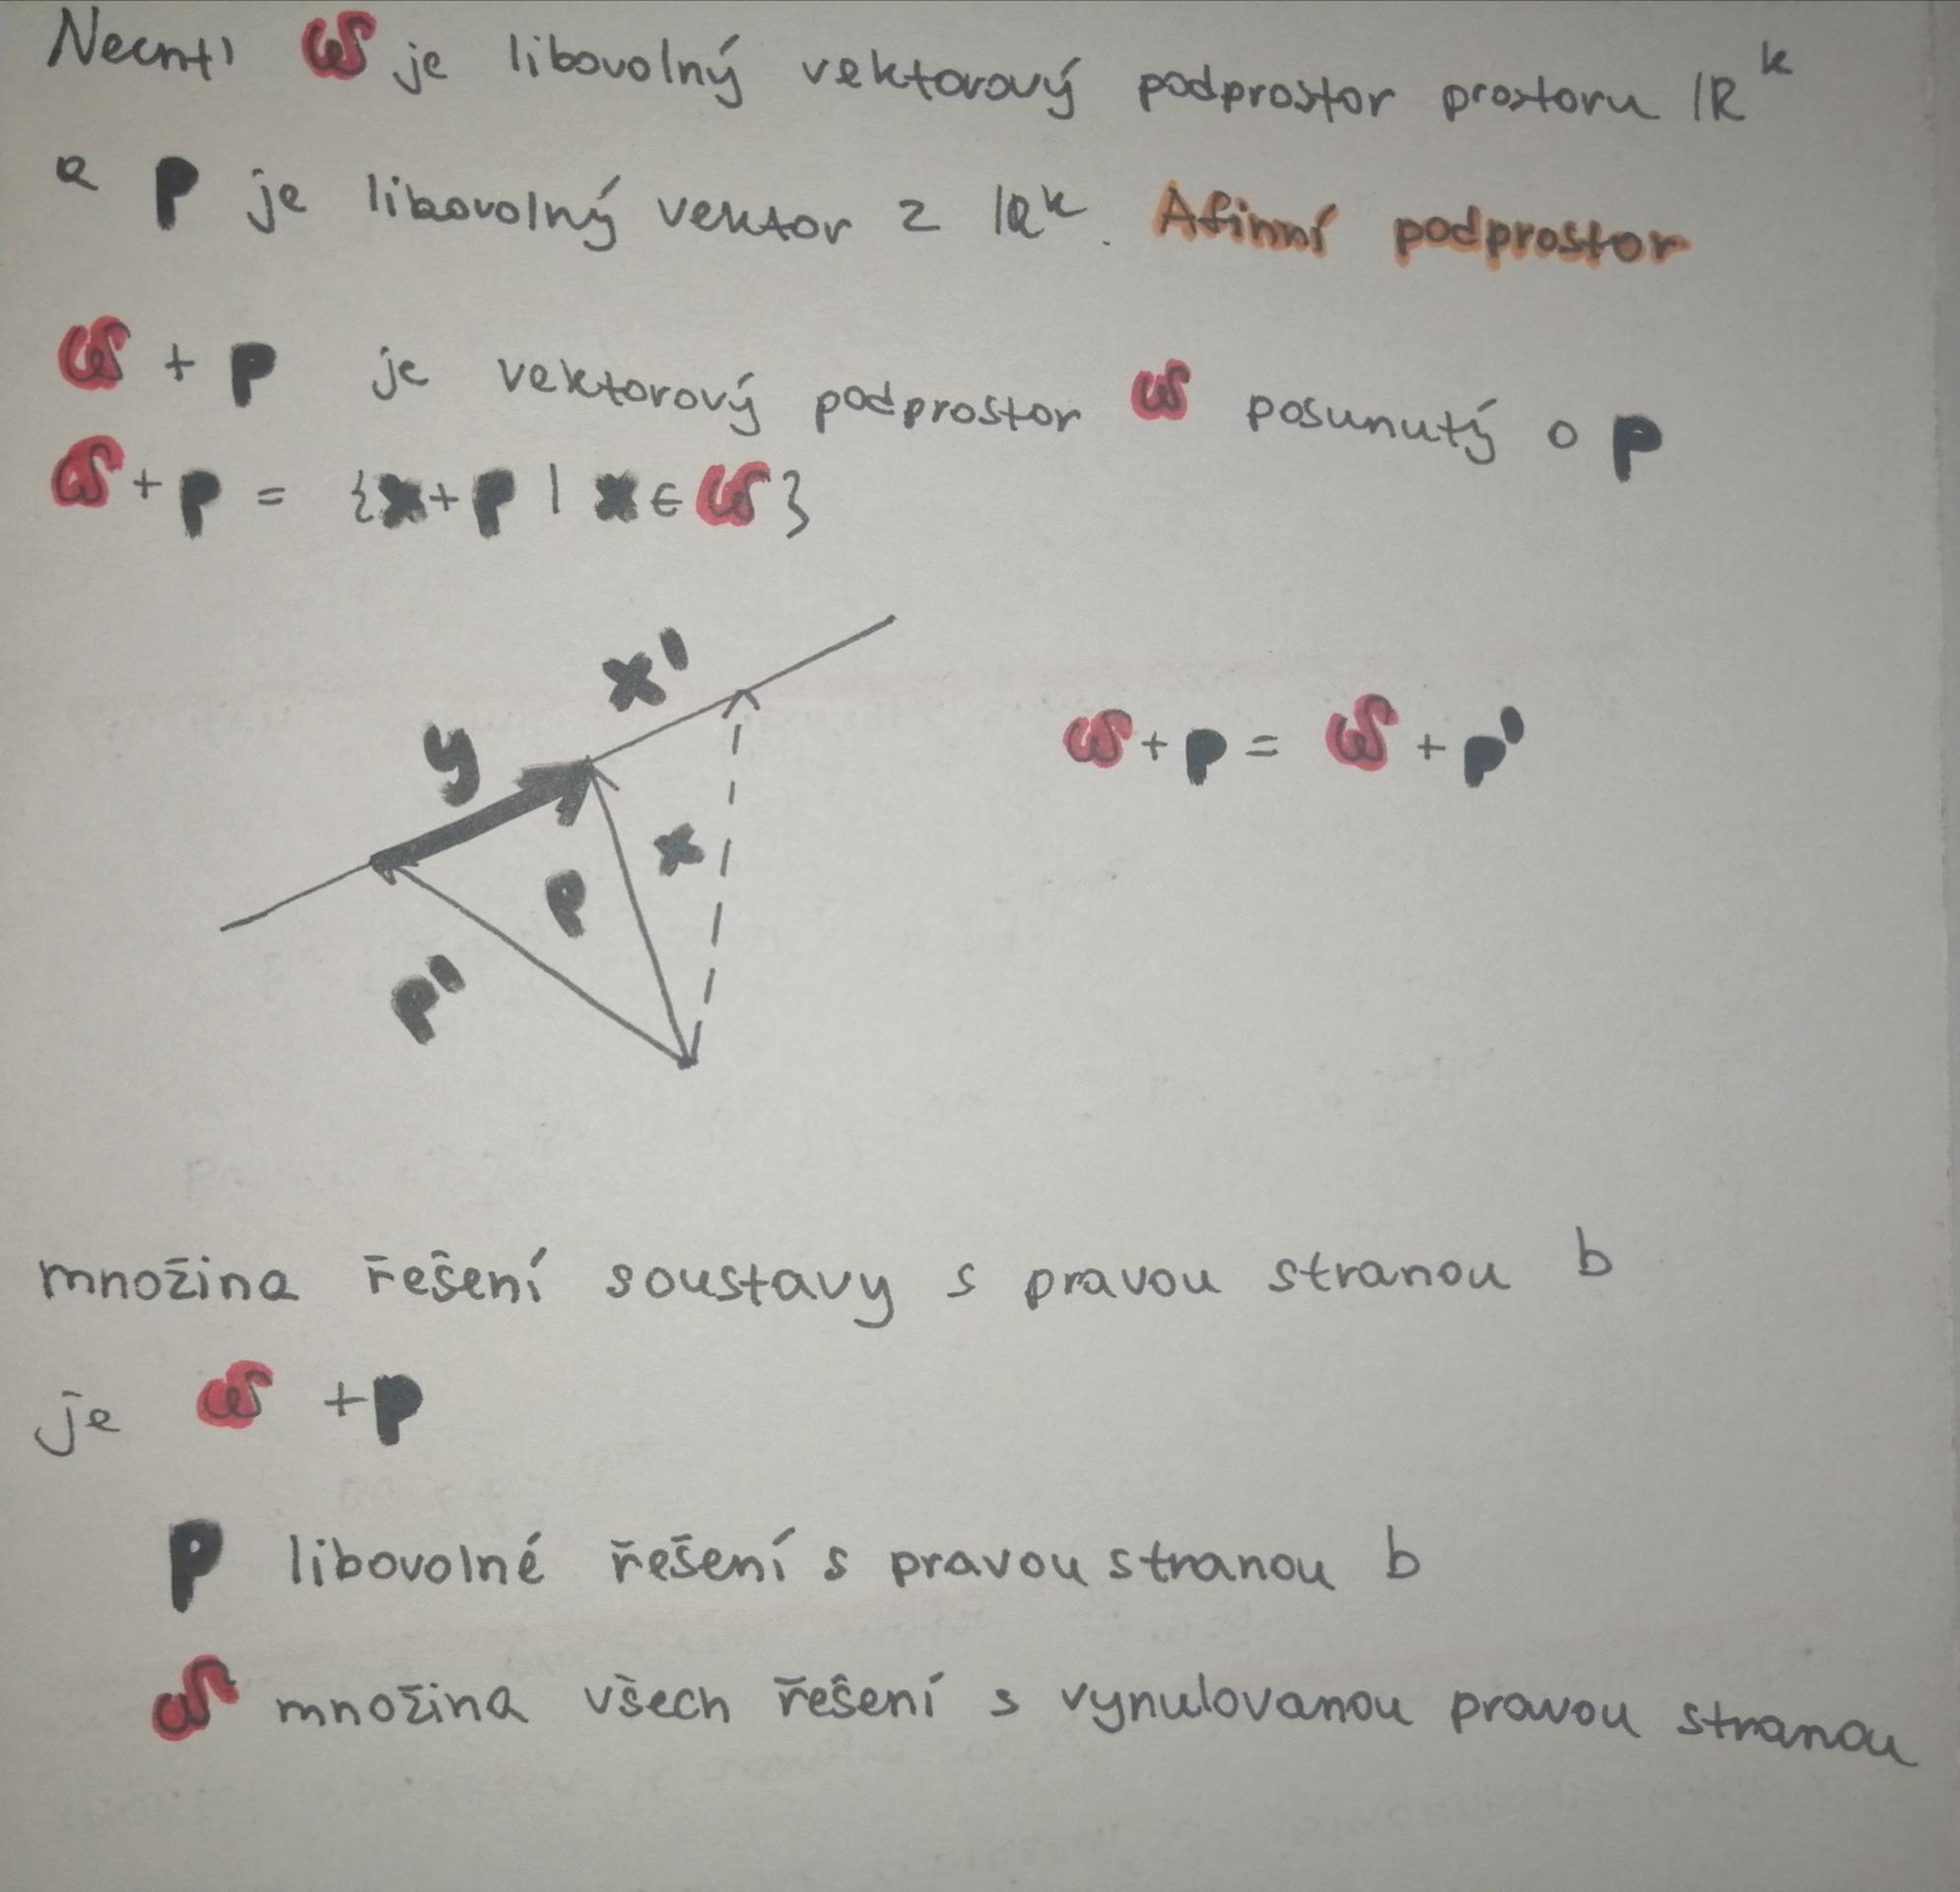 Nechť 𝒮 je libovolný vektorový podprostor prostoru ℝᵏ
a p je libovolný vektor z ℝᵏ. Afinní podprostor
𝒮 + p je vektorový podprostor 𝒮 posunutý o p
𝒮 + p = {x+p | x ∈ 𝒮}
x'
y
𝒮 + p = 𝒮 + p'
x
p
p'
množina řešení soustavy s pravou stranou b
je 𝒮 + p
p libovolné řešení s pravou stranou b
𝒮 množina všech řešení s vynulovanou pravou stranou